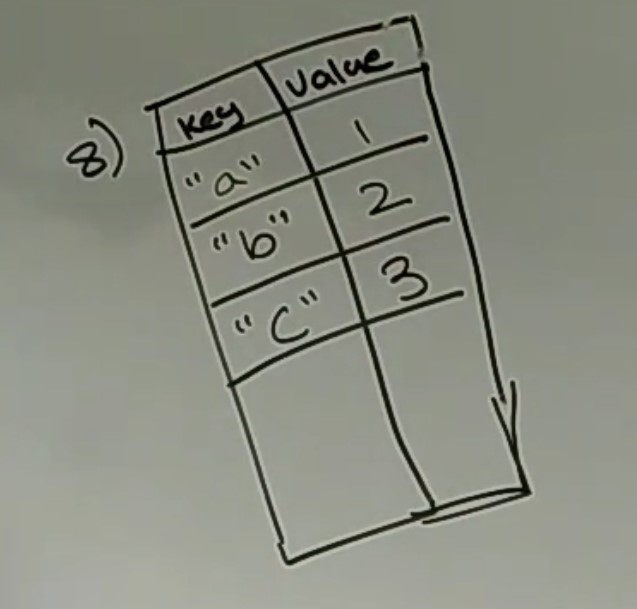 8)
key value
"a" 1
"b" 2
"C" 3